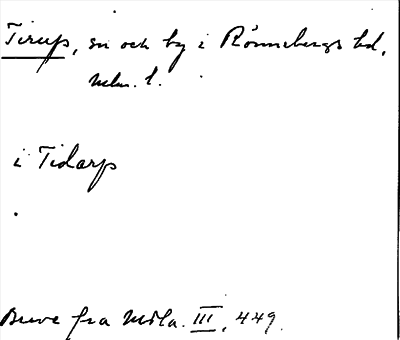 Tirup, sn och by i Rönnebergs hd,
Mlm. l.
i Tidarp
Breve fra Mdla. III, 449.